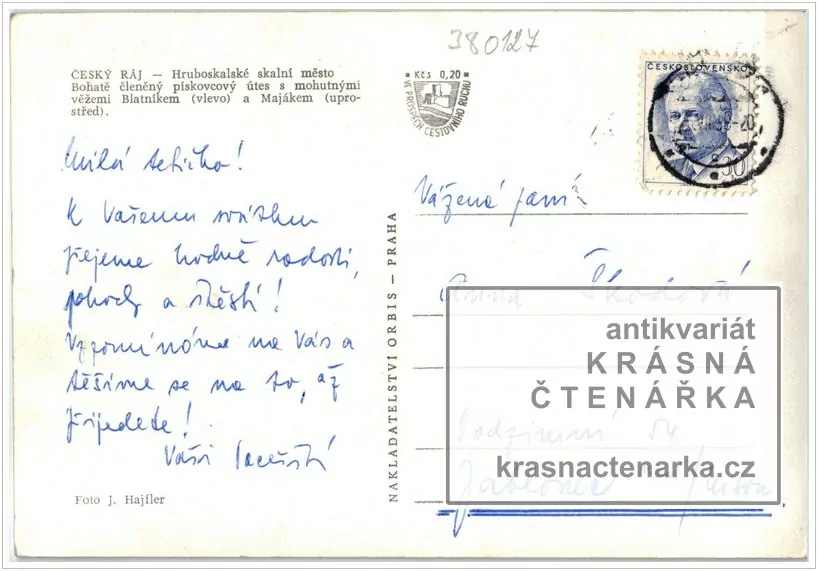 380127
ČESKÝ RÁJ — Hruboskalské skalní město
Bohatě členěný pískovcový útes s mohutnými
věžemi Blatníkem (vlevo) a Majákem (upro-
střed).
Kčs 0,20
VE PROSPĚCH CESTOVNÍHO RUCHU
ČESKOSLOVENSKO
Milá tetičko!
K Vašemu svátku
přejeme hodně radosti,
pohody a štěstí!
Vzpomínáme na Vás a
těšíme se na to, až
přijedete!
Vaši
Foto J. Hajfler
NAKLADATELSTVÍ ORBIS — PRAHA
Vážená paní
Anna Škodová
Podzimní 54
Jablonec
antikvariát
KRÁSNÁ
ČTENÁŘKA
krasnactenarka.cz